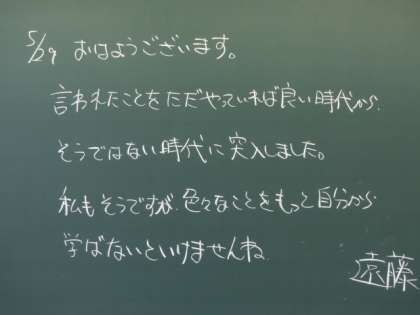 5/29 おはようございます。
言われたことをただやっていれば良い時代から、
そうではない時代に突入しました。
私もそうですが、色々なことをもっと自分から
学ばないといけませんね。
遠藤